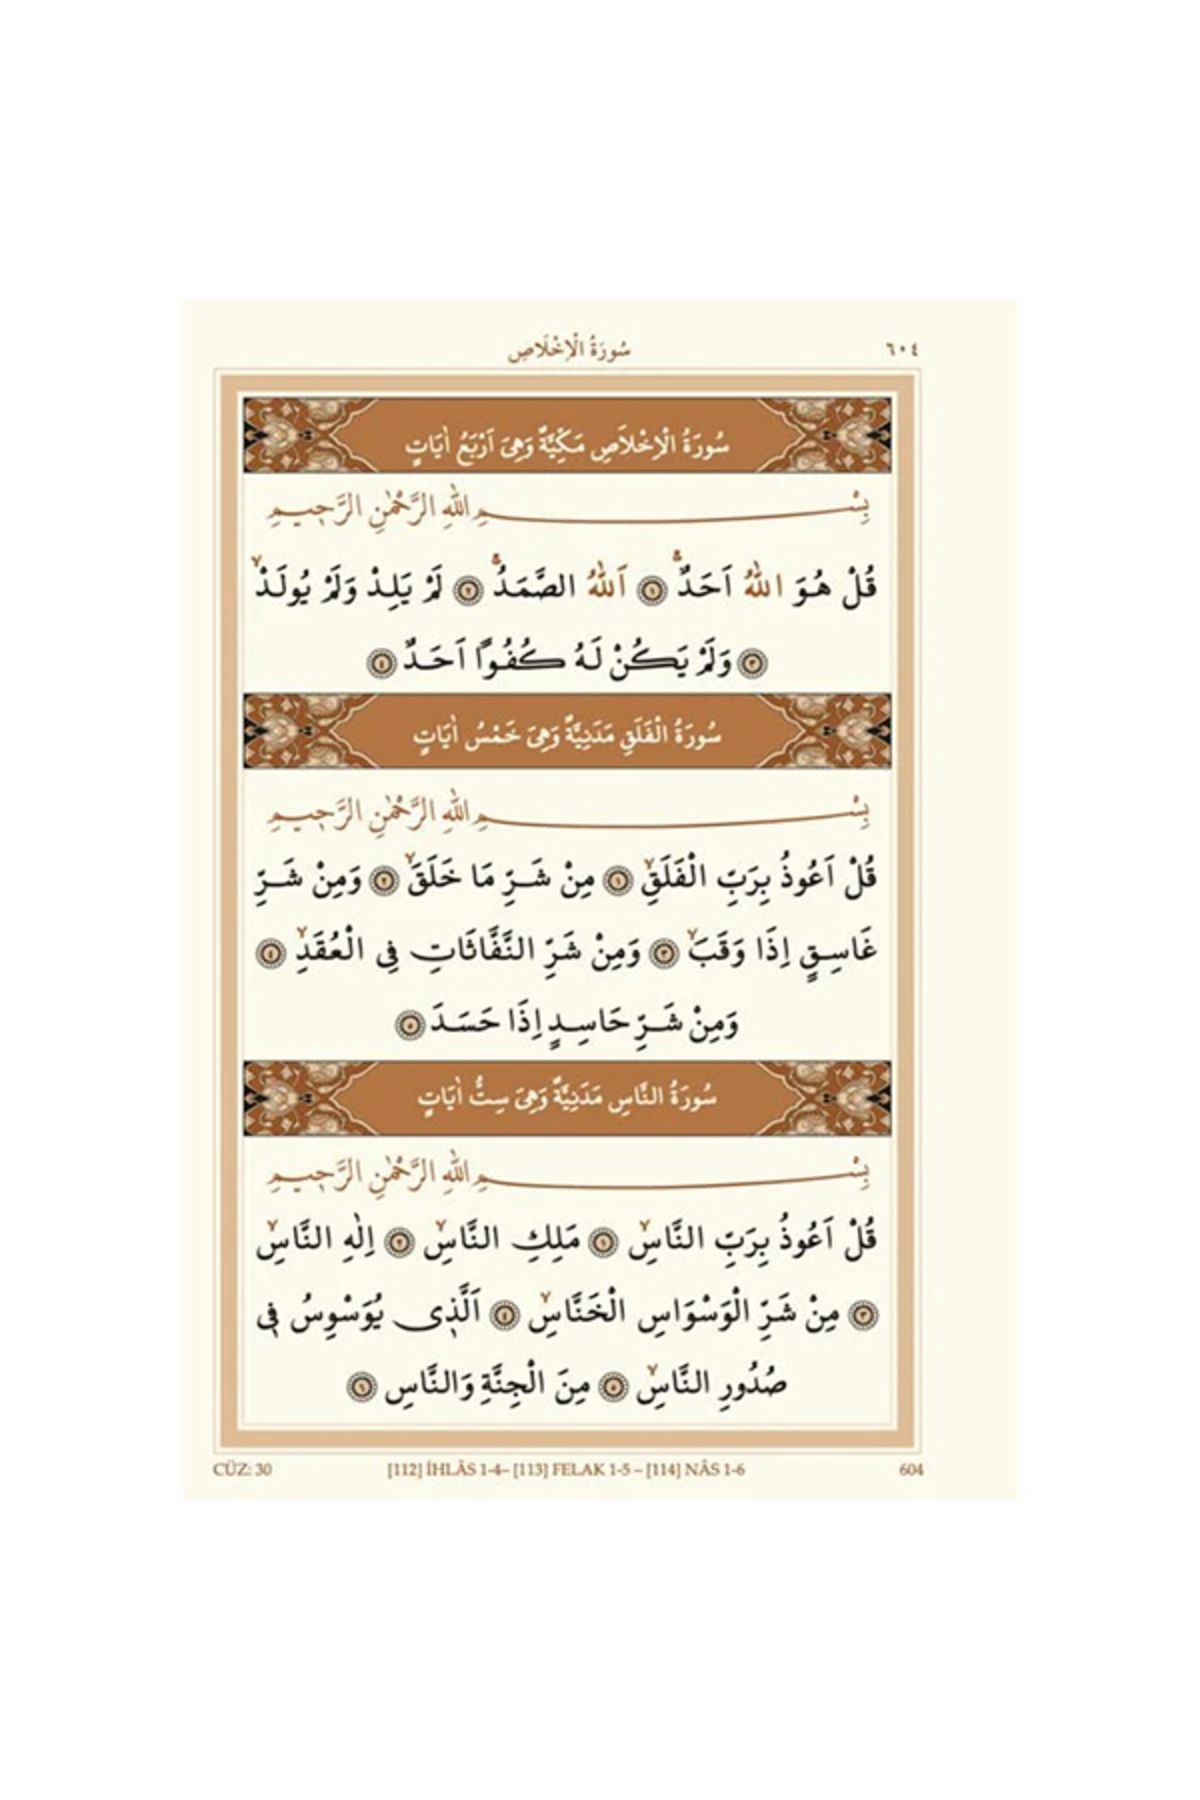 سُورَةُ الْاِخْلَاصِ ٦٠٤
سُورَةُ الْاِخْلَاصِ مَكِّيَّةٌ وَهِىَ اَرْبَعُ اٰيَاتٍ
بِسْمِ اللّٰهِ الرَّحْمٰنِ الرَّحِيمِ
قُلْ هُوَ اللّٰهُ اَحَدٌۚ ﴿١﴾ اَللّٰهُ الصَّمَدُۚ ﴿٢﴾ لَمْ يَلِدْ وَلَمْ يُولَدْۙ
﴿٣﴾ وَلَمْ يَكُنْ لَهُ كُفُوًا اَحَدٌ ﴿٤﴾
سُورَةُ الْفَلَقِ مَدَنِيَّةٌ وَهِىَ خَمْسُ اٰيَاتٍ
بِسْمِ اللّٰهِ الرَّحْمٰنِ الرَّحِيمِ
قُلْ اَعُوذُ بِرَبِّ الْفَلَقِۙ ﴿١﴾ مِنْ شَرِّ مَا خَلَقَۙ ﴿٢﴾ وَمِنْ شَرِّ
غَاسِقٍ اِذَا وَقَبَۙ ﴿٣﴾ وَمِنْ شَرِّ النَّفَّاثَاتِ فِى الْعُقَدِۙ ﴿٤﴾
وَمِنْ شَرِّ حَاسِدٍ اِذَا حَسَدَ ﴿٥﴾
سُورَةُ النَّاسِ مَدَنِيَّةٌ وَهِىَ سِتُّ اٰيَاتٍ
بِسْمِ اللّٰهِ الرَّحْمٰنِ الرَّحِيمِ
قُلْ اَعُوذُ بِرَبِّ النَّاسِۙ ﴿١﴾ مَلِكِ النَّاسِۙ ﴿٢﴾ اِلٰهِ النَّاسِۙ
﴿٣﴾ مِنْ شَرِّ الْوَسْوَاسِ الْخَنَّاسِۙ ﴿٤﴾ اَلَّذ۪ى يُوَسْوِسُ ف۪ى
صُدُورِ النَّاسِۙ ﴿٥﴾ مِنَ الْجِنَّةِ وَالنَّاسِ ﴿٦﴾
CÜZ: 30 [112] İHLÂS 1-4– [113] FELAK 1-5 – [114] NÂS 1-6 604